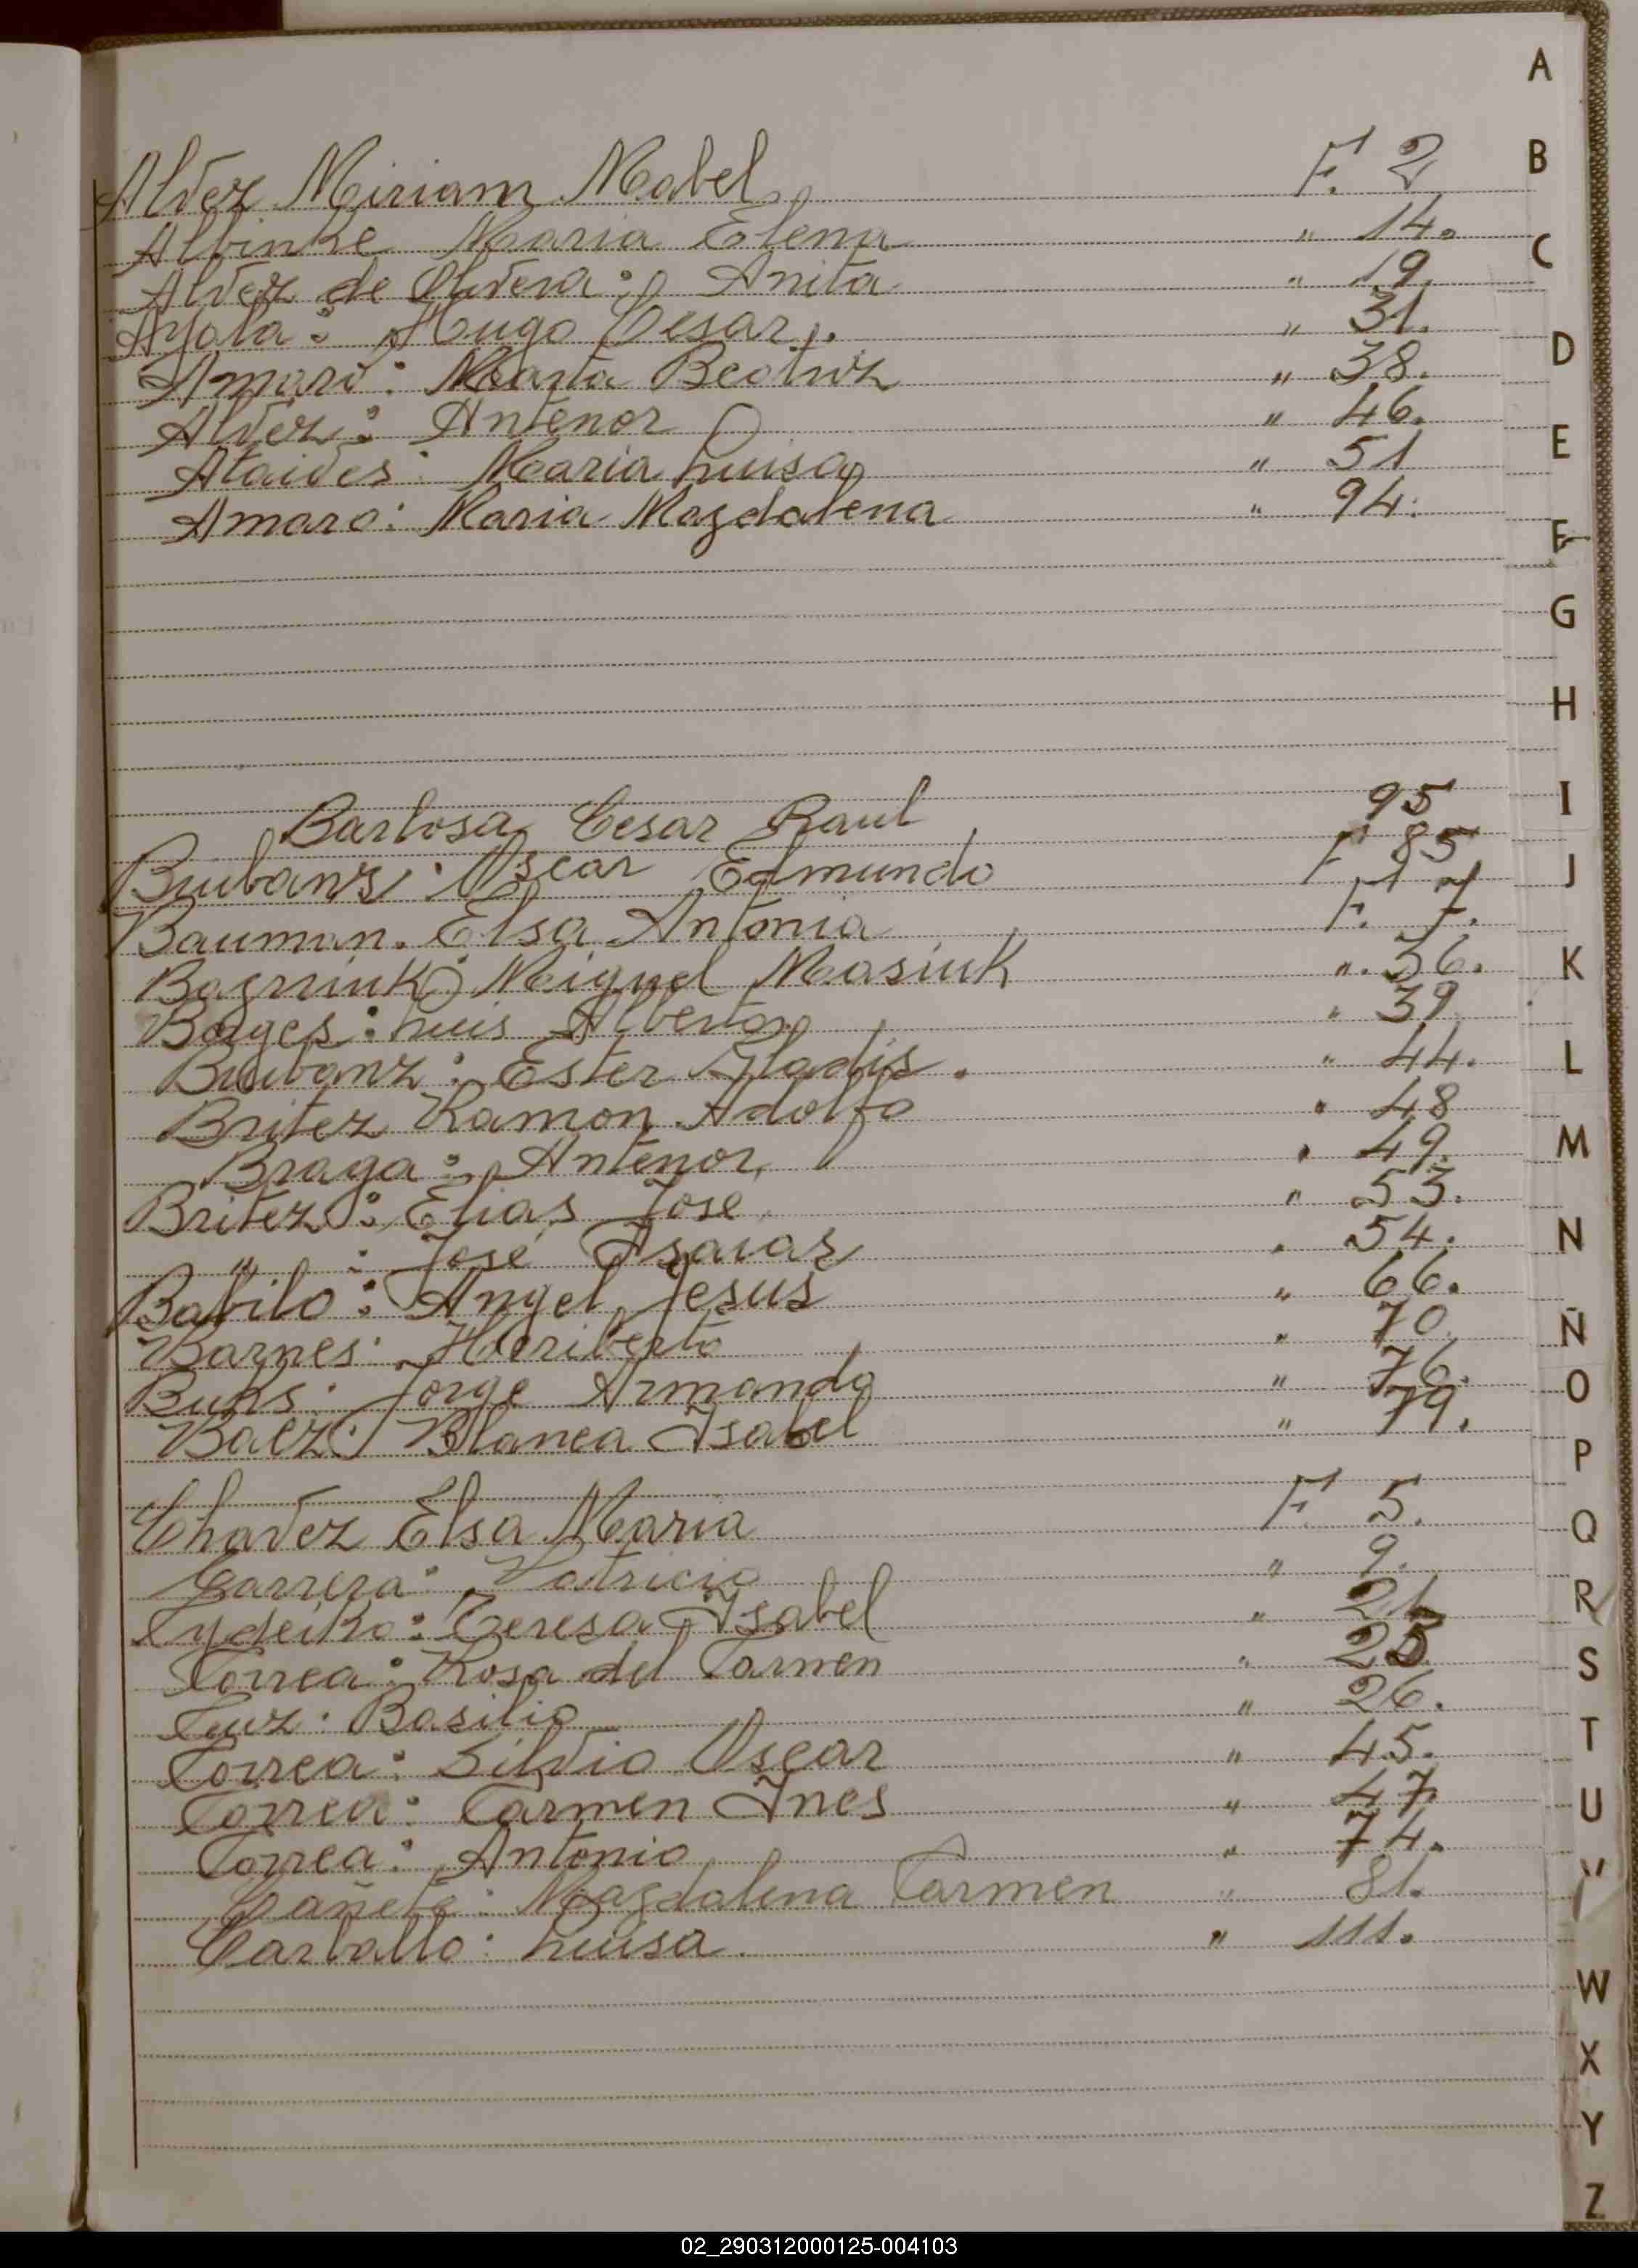 Alvez Miriam Mabel F. 2
Albinke Maria Elena " 14.
Alvez de Olivera: Anita " 19.
Ayala: Hugo Cesar. " 31.
Amaro: Marta Beatriz " 38.
Alvez: Antenor " 46.
Ataides: Maria Luisa " 51
Amaro: Maria Magdalena " 94.
Barbosa Cesar Raul 95
Oscar Edmundo F 85
Bauman. Elsa Antonia F. 7.
Miguel Masiuk ". 36.
Bages: Luis Alberto " 39
Ester Gladis. " 44.
Britez Ramon Adolfo " 48
Braga: Antenor " 49.
Britez: Elias Jose " 53.
" : José Isaias " 54.
Babilo: Angel Jesus " 66.
Barnes: Heriberto " 70
Buhs: Jorge Armando " 76.
Baez: Blanca Isabel " 79.
Chavez Elsa Maria F. 5.
Carrera: Patricia " 9.
Cydeiko: Teresa Isabel " 21
Correa: Rosa del Carmen " 25
Basilio " 26.
Correa: Silvio Oscar " 45.
Correa: Carmen Ines " 47
Correa: Antonio " 74.
Cañete: Magdalena Carmen " 81.
Carballo: Luisa. " 111.
A
B
C
D
E
F
G
H
I
J
K
L
M
N
Ñ
O
P
Q
R
S
T
U
V
W
X
Y
Z
02_290312000125-004103